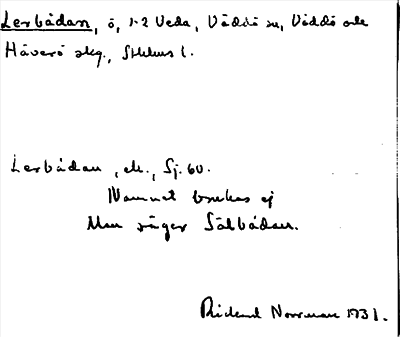 Lerbådan, ö, 1-2 Veda, Väddö sn, Väddö och
Häverö skg., Sthlms l.
Lerbådan, ek., Sj. 60.
Namnet brukas ej
Man säger Sälbådan.
Rickard Norrman 1931.